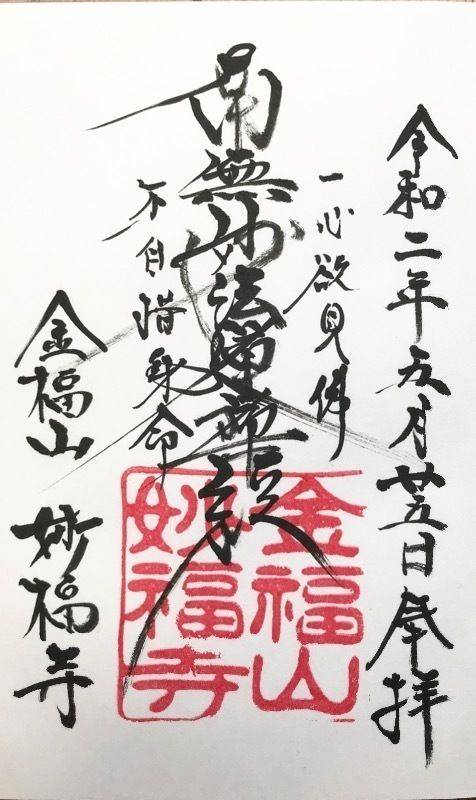 令和二年五月廿五日奉拝
一心欲見佛
南無妙法蓮華経
不自惜身命
金福山 妙福寺
金福山
妙福寺